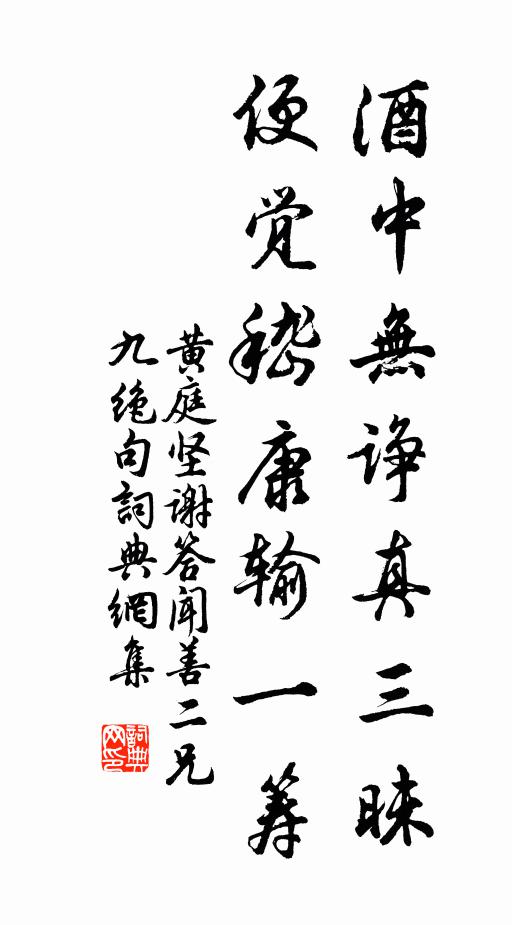 酒中無诤真三昧
便觉嵇康输一筹
黄庭坚谢答闻善二兄
九绝句詞典網集
詞典
网印